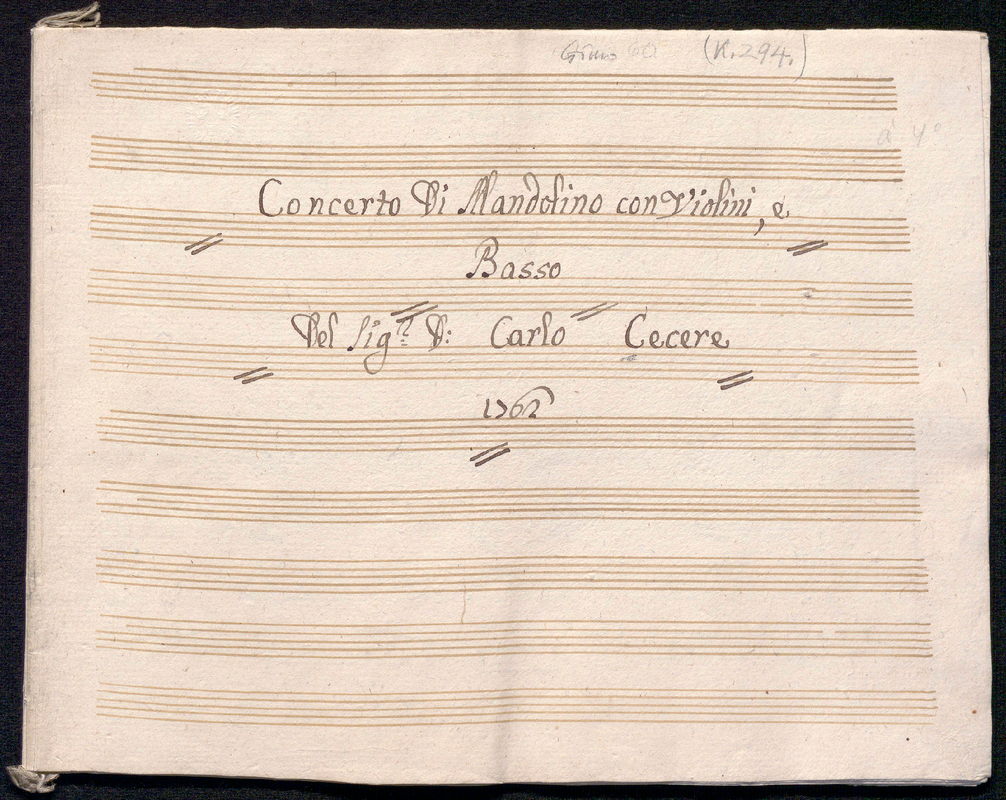 Gimo 60 (K. 294.)
a 4°
Concerto Di Mandolino con Violini, e
Basso
Del Sig.re D: Carlo Cecere
1762